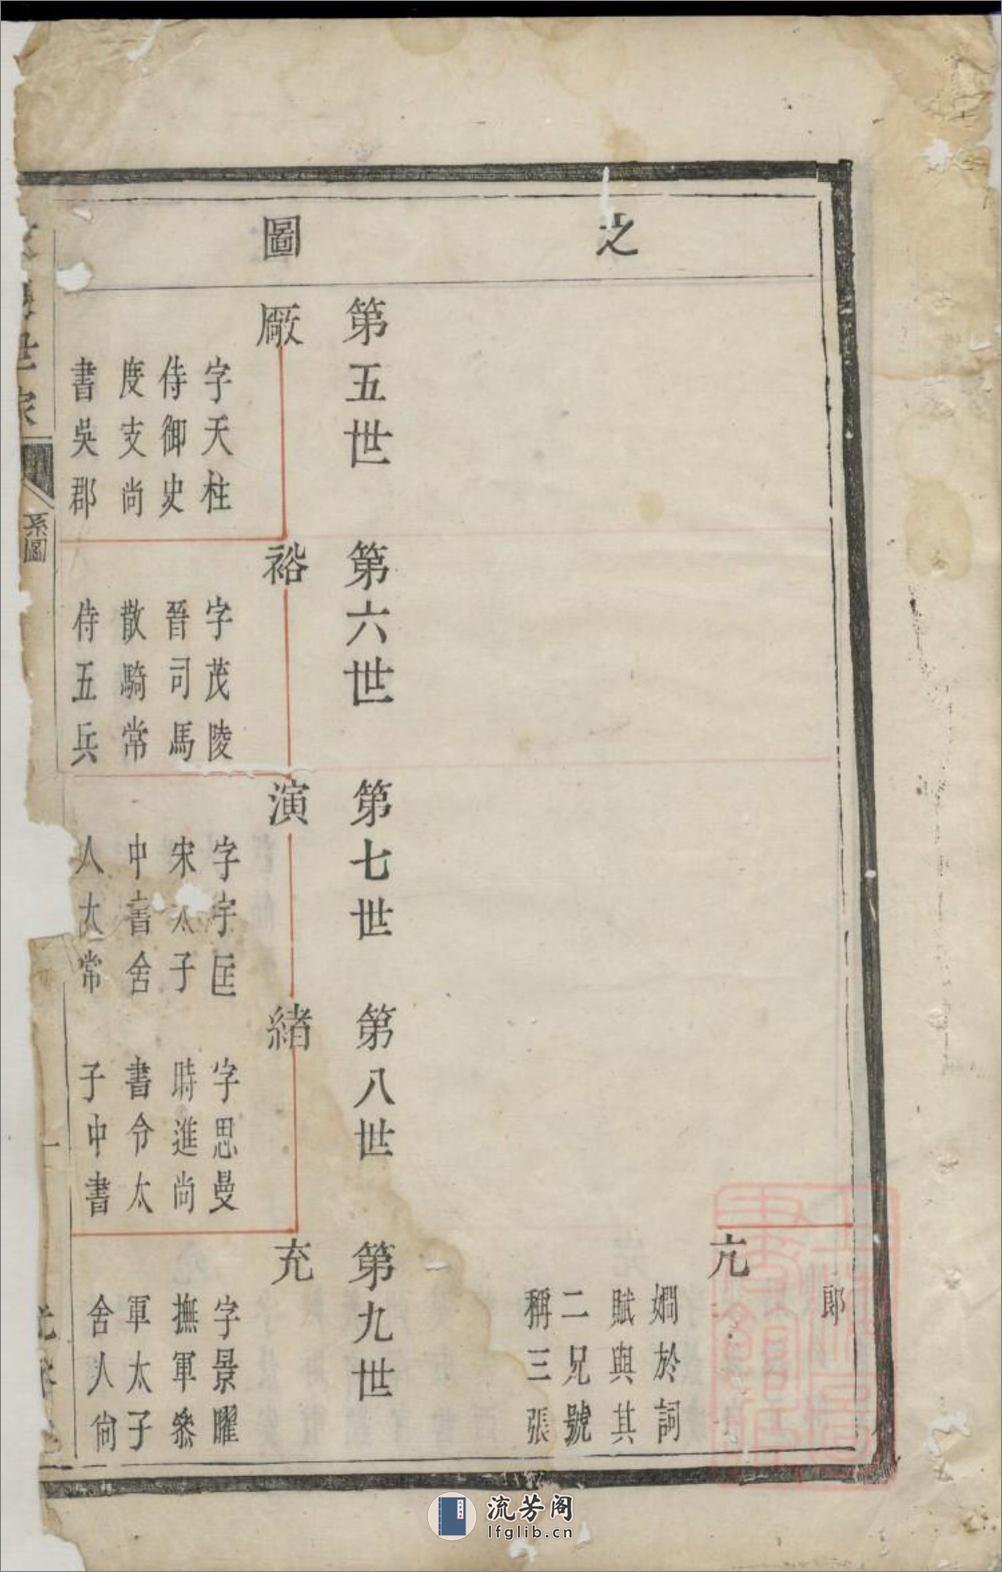 之
圖
郎
亢
嫺於詞
賦與其
二兄號
稱三張
第五世
廠
字天柱
侍御史
度支尚
書吳郡
第六世
裕
字茂陵
晉司馬
散騎常
侍五兵
第七世
演
字宇匡
宋太子
中書舍
人太常
第八世
緒
字思曼
時進尚
書令太
子中書
第九世
充
字景曜
撫軍參
軍太子
舍人尙
世家
系圖
流芳阁
lfglib.cn